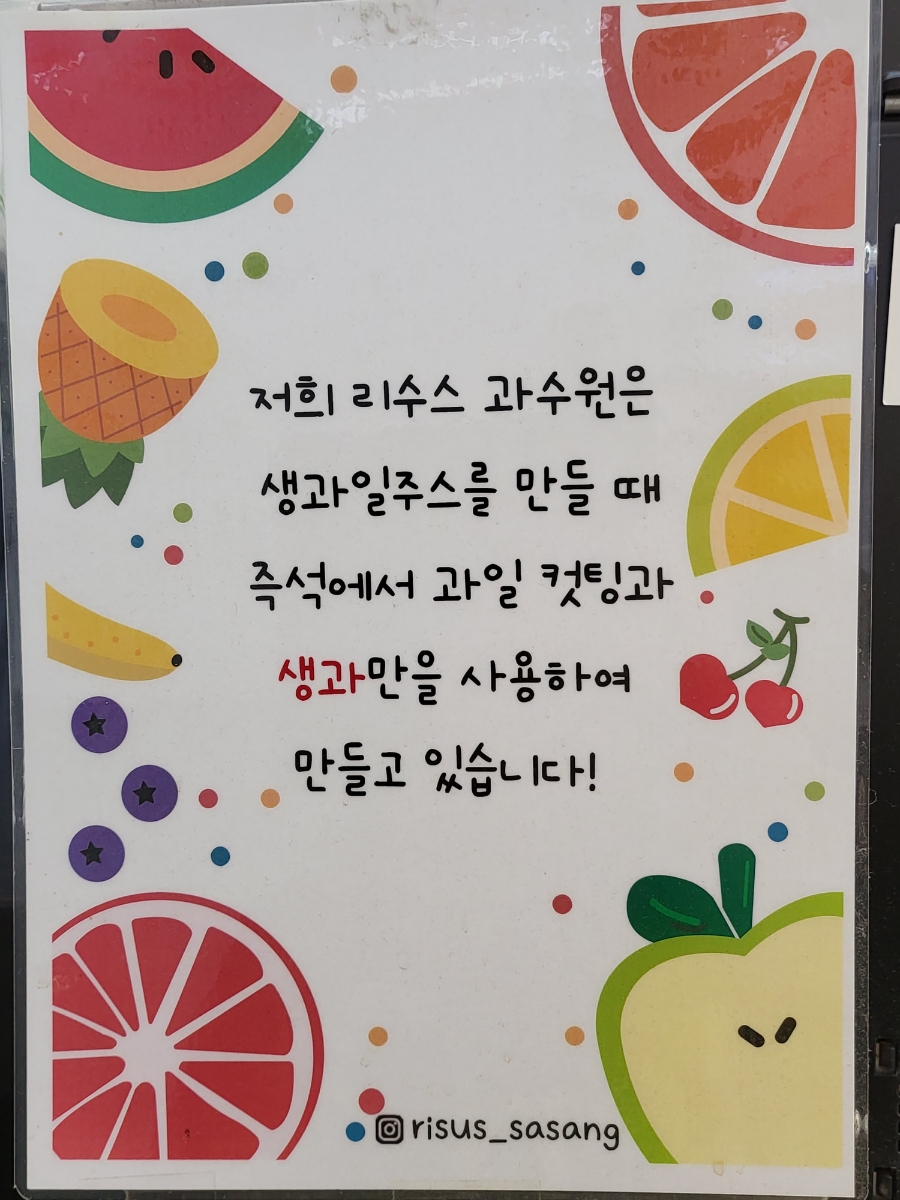 저희 리수스 과수원은
생과일주스를 만들 때
즉석에서 과일 컷팅과
생과만을 사용하여
만들고 있습니다!
risus_sasang